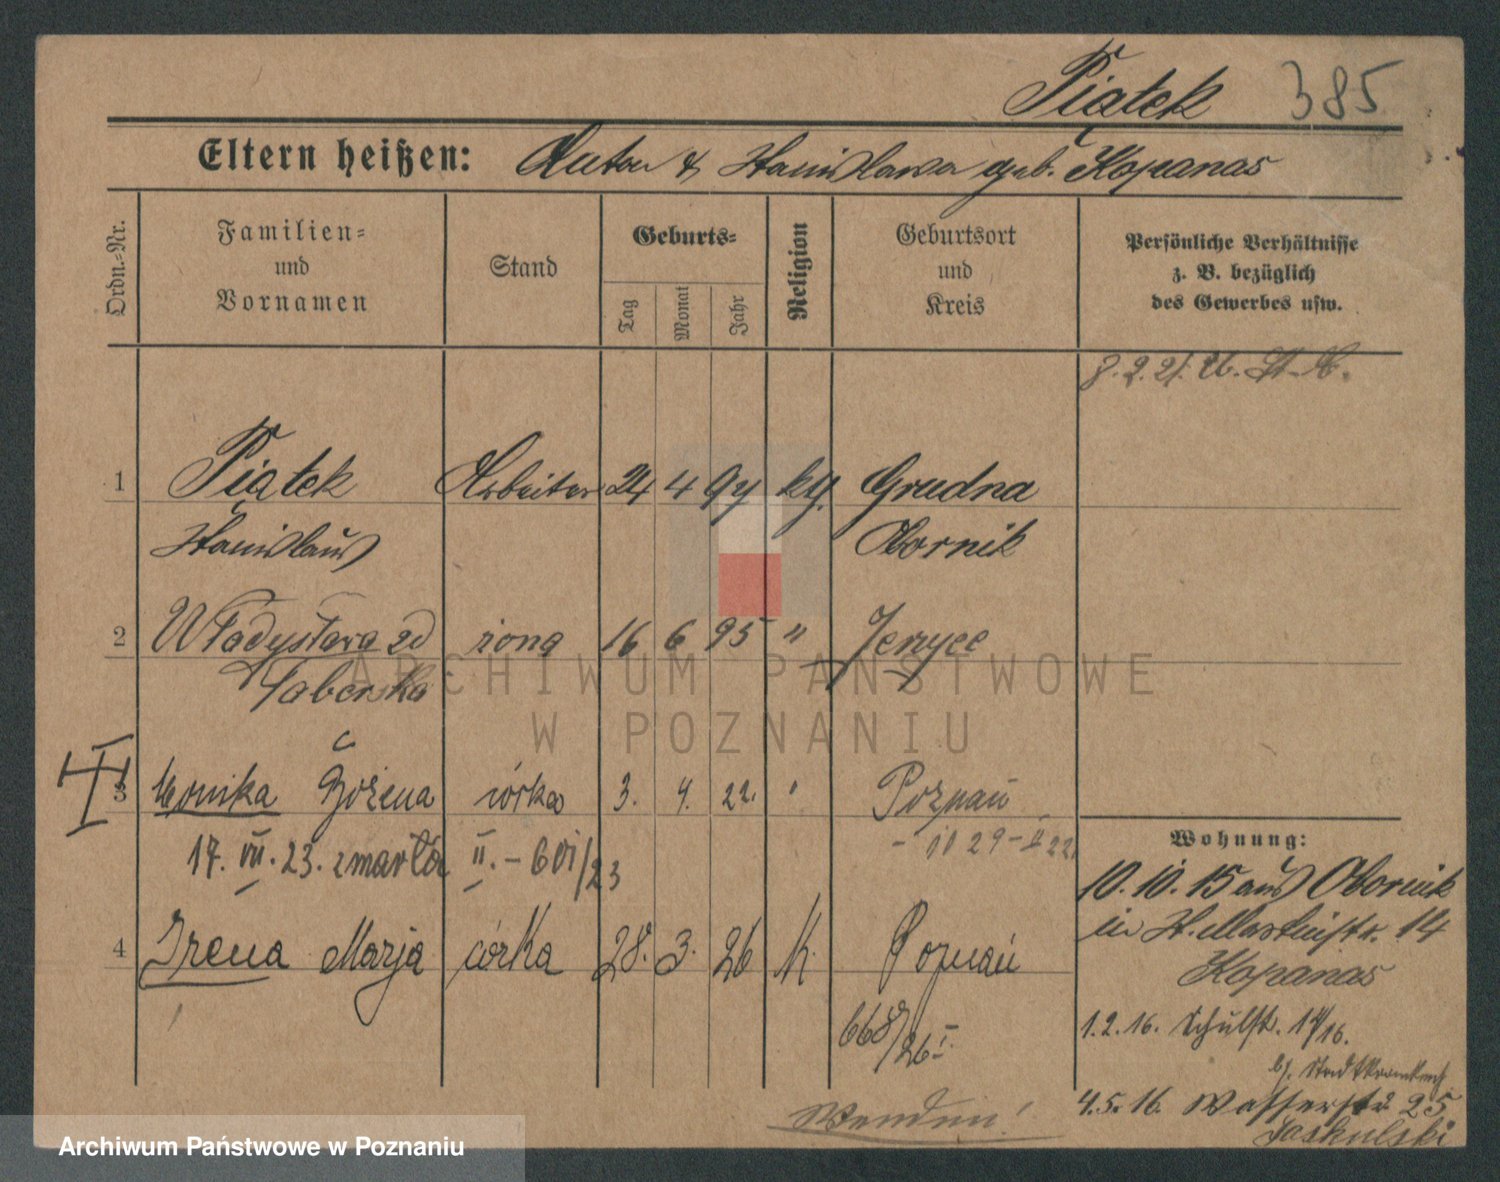 Piątek 385
Eltern heißen: Anton & Stanislawa geb. Kopanas
Ordn.=Nr.
Familien=
und
Vornamen
Stand
Geburts=
Tag
Monat
Jahr
Religion
Geburtsort
und
Kreis
Persönliche Verhältnisse
z. B. bezüglich
des Gewerbes usw.
1 Piątek Arbeiter 24 4 94 kg. Grudna
Stanislaus Obornik
2 Władysława zd żona 16 6 95 " Jerzyce
Taberska
3 Monika Bożena córka 3. 4. 22. " Poznań
17. VII. 23. zmarła II. - 601/23
4 Irena Marja córka 28. 3. 26 k. Poznań
668/26 I.
Wohnung:
10. 10. 15 aus Obornik
in St. Martinstr. 14
Kopanas
1. 2. 16. Schulstr. 14/16.
b/. Stadtkrankenh.
4. 5. 16. Wasserstr. 25
Jaskulski
Wenden!
ARCHIWUM PAŃSTWOWE
W POZNANIU
Archiwum Państwowe w Poznaniu